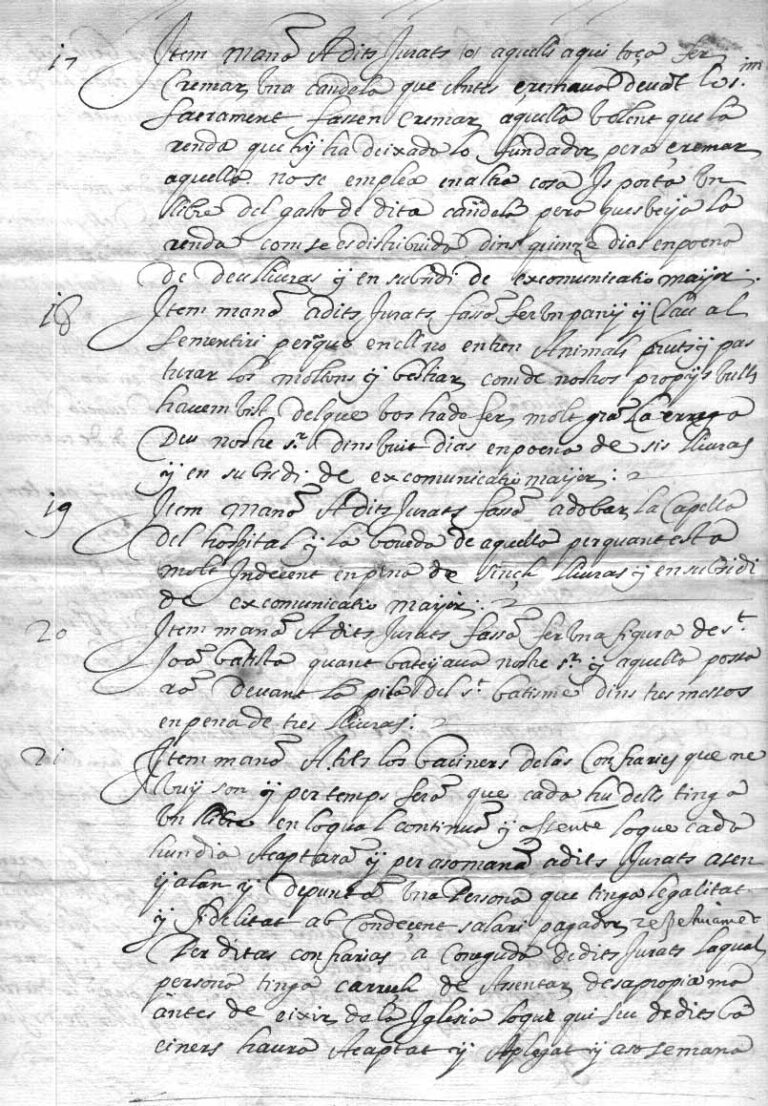 17 Item mană A dits Jurats o aquells aqui toca fer
Cremar una candela que Antes cremaua deuāt lo s.im
sacrament fassen cremar aquella volent que la
renda que hÿ ha deixada lo fundador pera cremar
aquella no se emplea en altra cosa Js porta Un
llibre del gasto de dita candela pera ques veija la
renda com se es distribuida dins quinze dias en poena
de deu lliuras ÿ en subsidi de excomunicatio maijor:
18 Item mană a dits Jurats fassā fer un panÿ ÿ Clau al
sementiri perque en ell no entren Animals ÿ pas
turar los moltons ÿ bestiar com de nostros propÿs vulls
hauem vist delque vos ha de fer molt grā La
Deu nostre sr. dens vuit dias en poena de sis lliuras
ÿ en subsidi de excomunicatio maijor:
19 Item mană A dits Jurats fassā adobar la Capella
del hospital ÿ la boueda de aquella per quant esta
molt Indecent en pena de sinch lliuras ÿ en subsidi
de excomunicatio maijor:
20 Item mană A dits Jurats fassā fer una figura de st.
Joā batista quant bateijaua nostre sr. ÿ aquella posa
rā deuant la pila del st. batisme dins tres mesos
en pena de tres lliuras:
21 Item mană A tots los baciners de las Confraries que ne
vuÿ son ÿ per temps serā que cada hu dells tinga
un llibre en lo qual continuā ÿ assente lo que cada
hun dia Acaptarā ÿ per aso mană a dits Jurats asen
ÿalan ÿ deputā una Persona que tinga legalitat
ÿ fidelitat ab Condecent salari pagador respectiuamēt
Per ditas confrarias a Coneguda de dits Jurats laqual
persona tinga carrech de Asentar de sa propia ma
antes de eixir de la Iglesia lo que qui seu de dits ba
ciners haura Acaptat ÿ Aplegat ÿ aso se mana